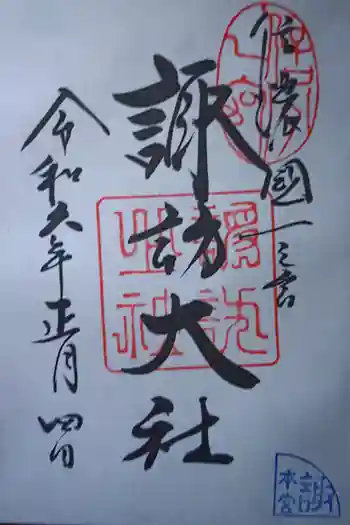 信濃國一之宮
諏訪大社
令和六年正月四日
諏訪
之社
本宮